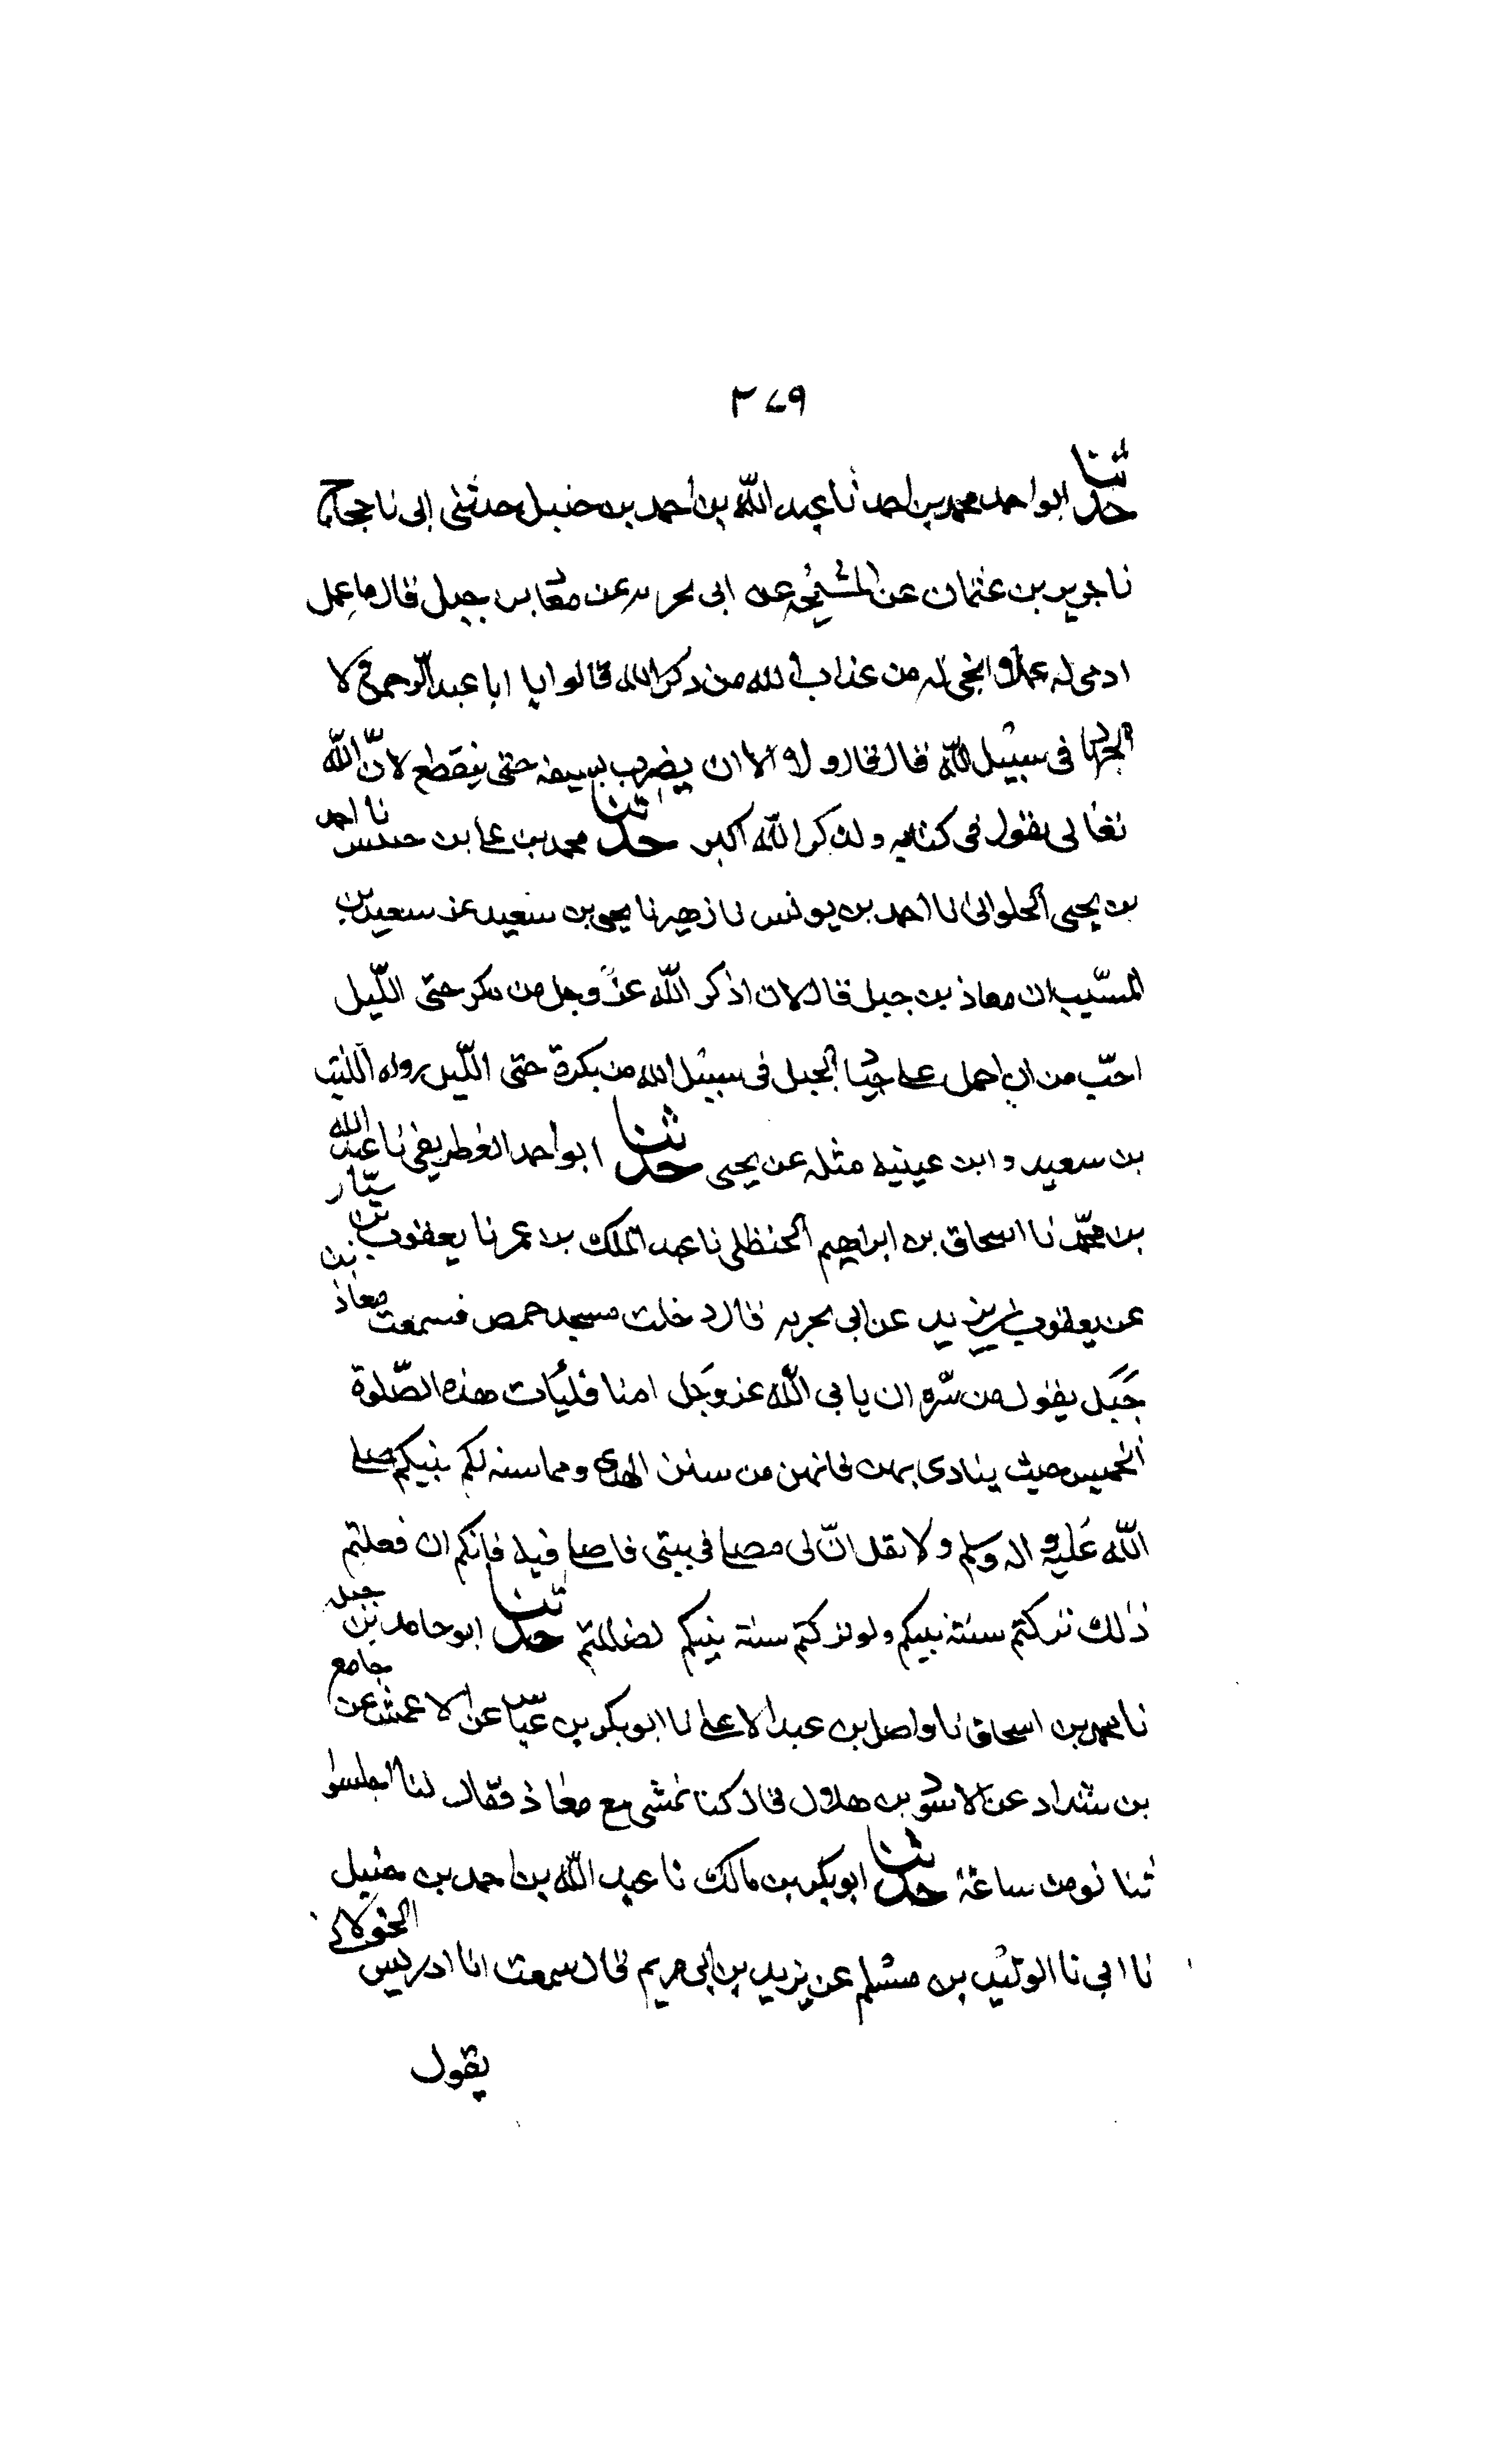 ٣٧٩
حدثنا ابو احمد محمد بن احمد نا عبد الله بن احمد بن حنبل حدثنى ابى نا حجاج
نا جرير بن عثمان عن المشيخه عن ابى بحريه عن معاذ بن جبل قال ما عمل
ادمى له عملا انجى له من عذاب الله من ذكر الله قالوا يا ابا عبد الرحمن ولا
الجهاد فى سبيل الله قال قال ولا الا ان يضرب بسيفه حتى ينقطع لان الله
تعالى يقول فى كتابه ولذكر الله اكبر حدثنا محمد بن على بن حبيش نا احمد
بن يحيى الحلوانى نا احمد بن يونس نا زهير نا يحيى بن سعيد عن سعيد بن
المسيب ان معاذ بن جبل قال لان اذكر الله عز وجل من بكرة حتى الليل
احب من ان احمل على جياد الخيل فى سبيل الله من بكرة حتى الليل رواه الليث
بن سعيد و ابن عيينه مثله عن يحيى حدثنا ابو احمد الغطريفى نا عبد الله
بن محمد نا اسحاق بن ابراهيم الحنظلى نا عبد الملك بن عمر نا يعقوب سيار
عن يعقوب بن يزيد عن ابى بحريه قال دخلت مسجد حمص فسمعت معاذ بن
جبل يقول من سره ان ياتى الله عز وجل امنا فليات هذه الصلوة
الخمس حيث ينادى بهن فانهن من سنن الهدى ومما سنه لكم نبيكم صلى
الله عليه و اله وسلم ولا يقل ان لى مصلى فى بيتى فاصلى فيه فانكم ان فعلتم
ذلك تركتم سنة نبيكم ولو تركتم سنة نبيكم لضللتم حدثنا ابو حامد بن جبله
نا محمد بن اسحاق نا واصل بن عبد الاعلى نا ابو بكر بن عياش عن الاعمش عن جامع
بن شداد عن الاسود بن هلال قال كنا نمشى مع معاذ فقال لنا اجلسوا
ثنا نومن ساعة حدثنا ابو بكر بن مالك نا عبد الله بن احمد بن حنبل
نا ابى نا الوليد بن مسلم عن يزيد بن ابى مريم قال سمعت ابا ادريس الخولانى
يقول